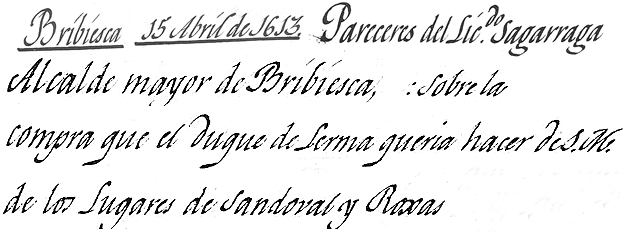 Bribiesca 15 Abril de 1613. Pareceres del Lic.do Sagarraga
Alcalde mayor de Bribiesca, : sobre la
compra que el duque de Lerma queria hacer de S. M.
de los Lugares de Sandoval y Roxas